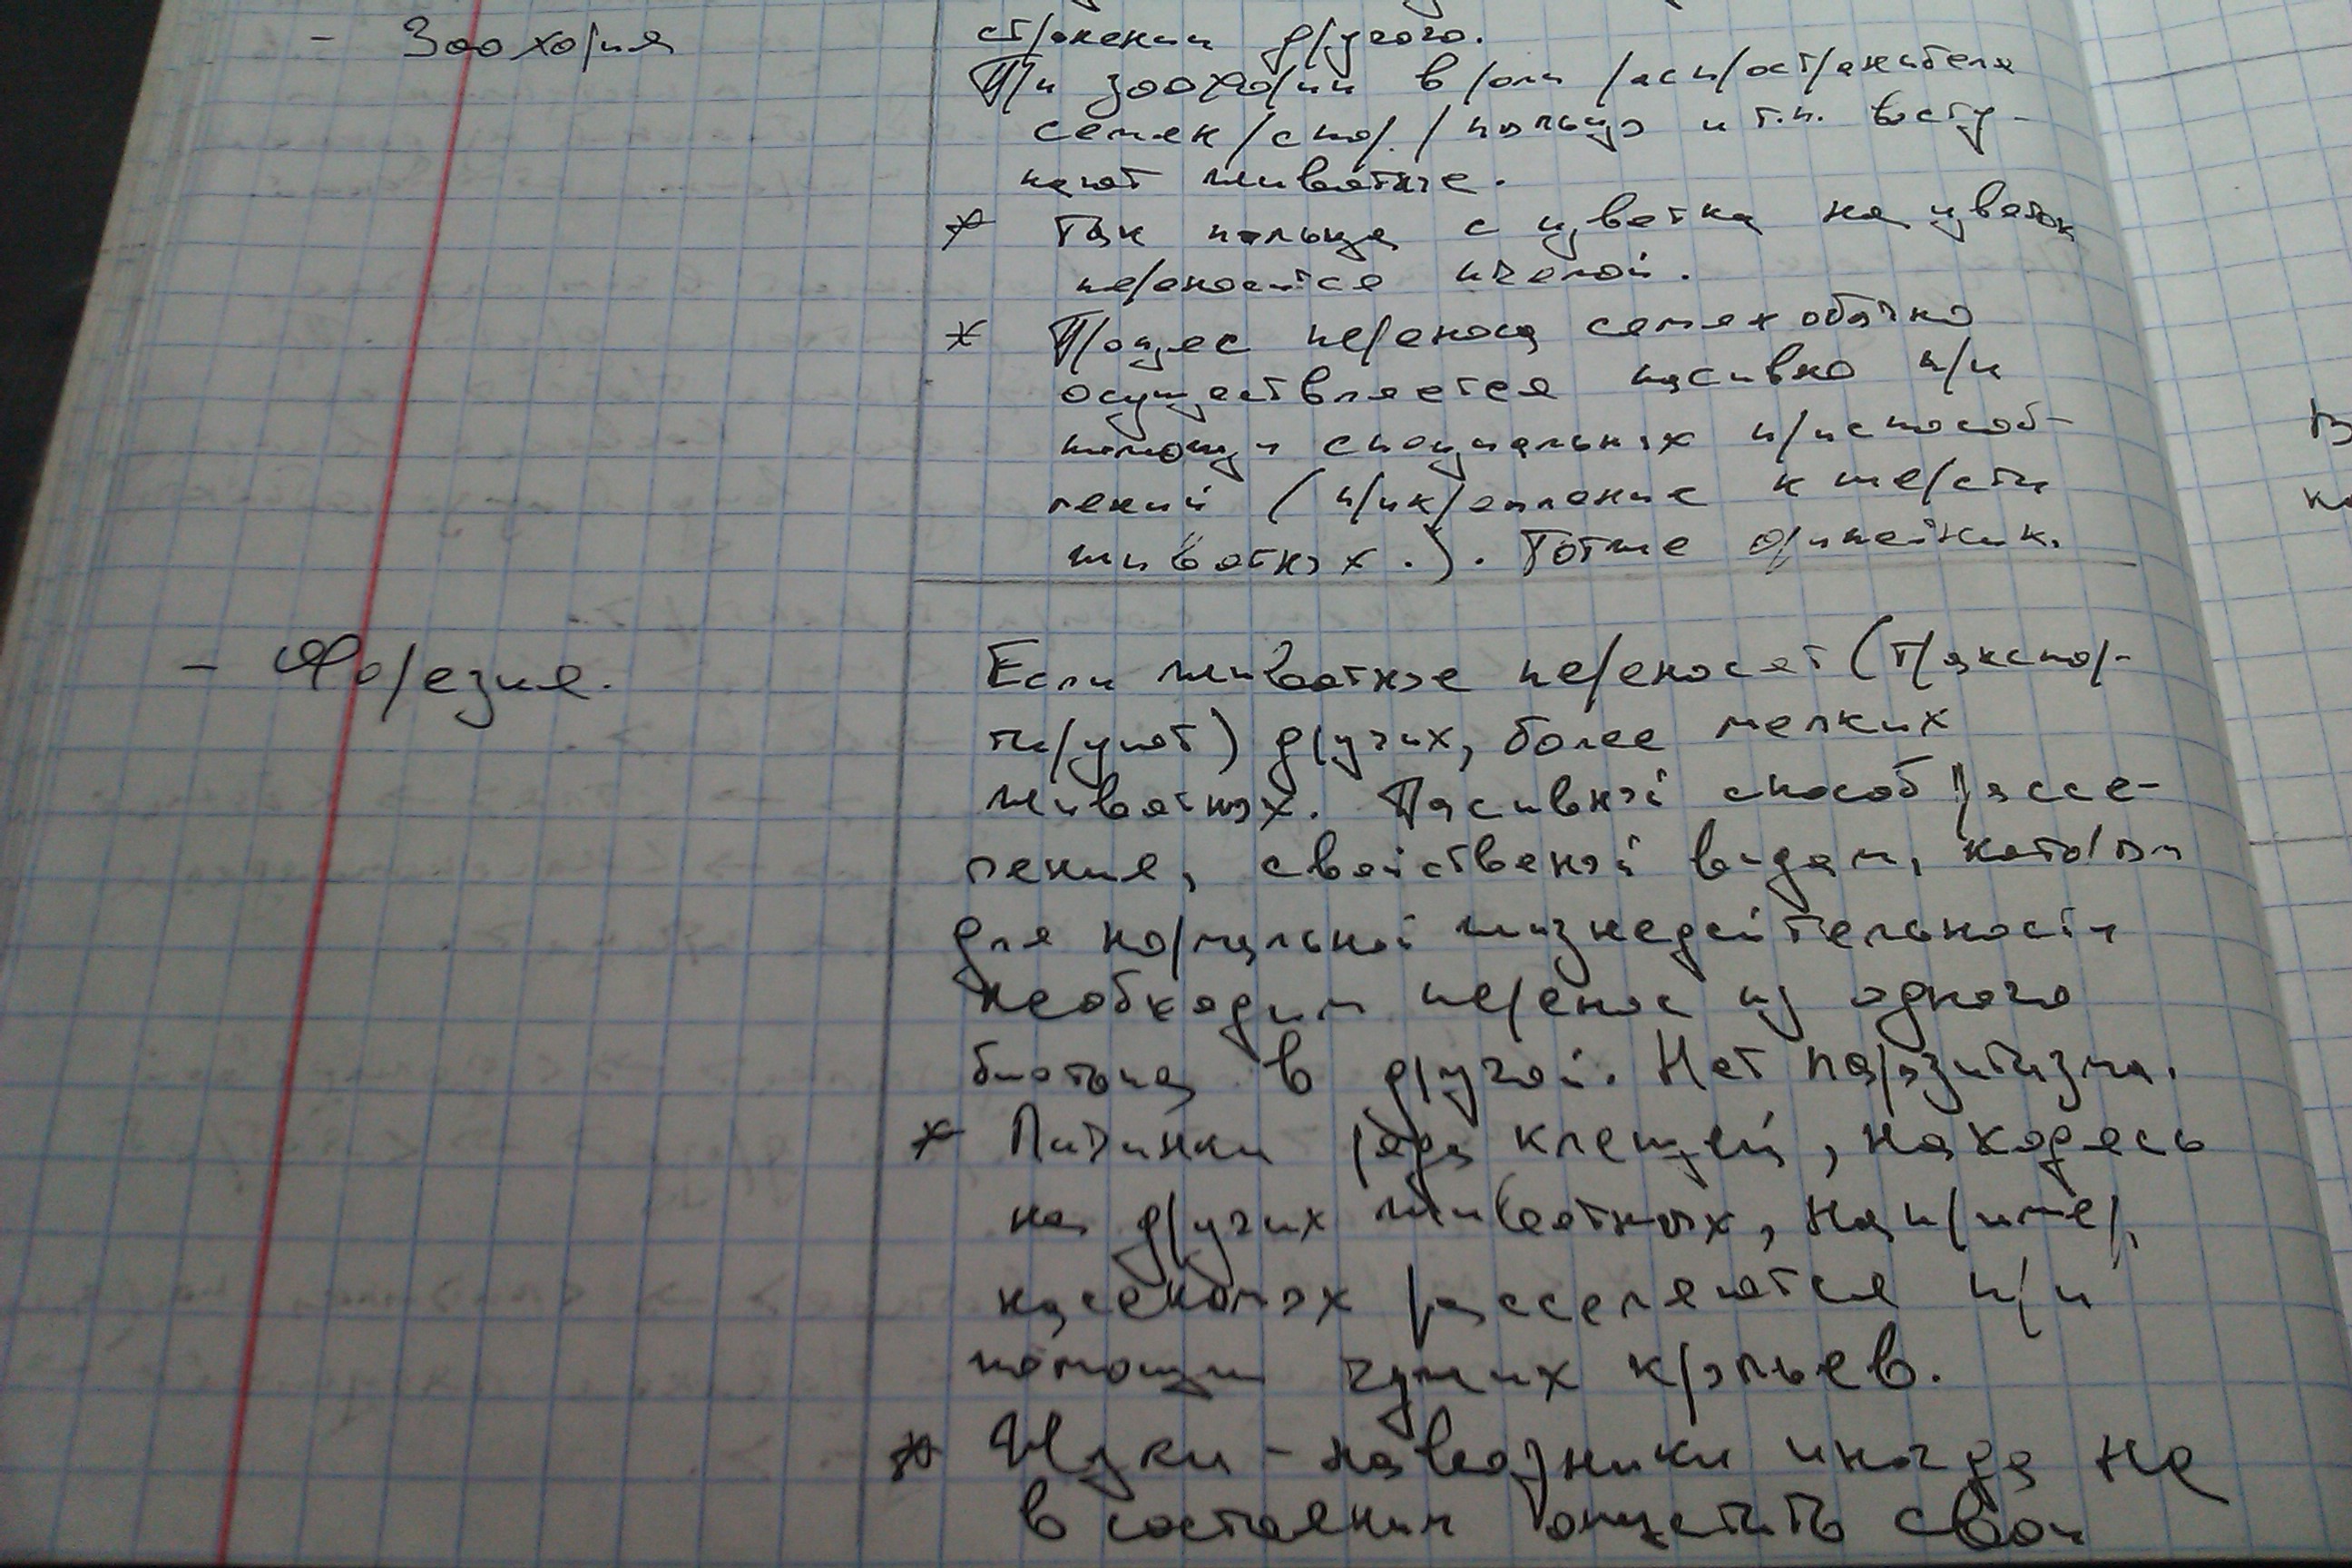 - Зоохория
странении другого.
При зоохории в роли распространителя
семян/спор/пыльцы и т.п. высту-
пают животные.
* Так пыльца с цветка на цветок
переносится пчелой.
* Процес переноса семян обычно
осуществляется пасивно при
помощи специальных приспособ-
лений (прикрепление к шерсти
животных.). Тотже репейник.
- Форезия.
Если животные переносят (транспор-
тируют) других, более мелких
животных. Пасивный способ рассе-
ления, свойственый видам, которым
для нормальной жизнедеятельности
необходим перенос из одного
биотопа в другой. Нет паразитизма.
* Личинки ряда клещей, находясь
на других животных, например,
насекомых расселяются при
помощи чужих крыльев.
* Жуки-навозники иногда не
в состоянии опустить свои